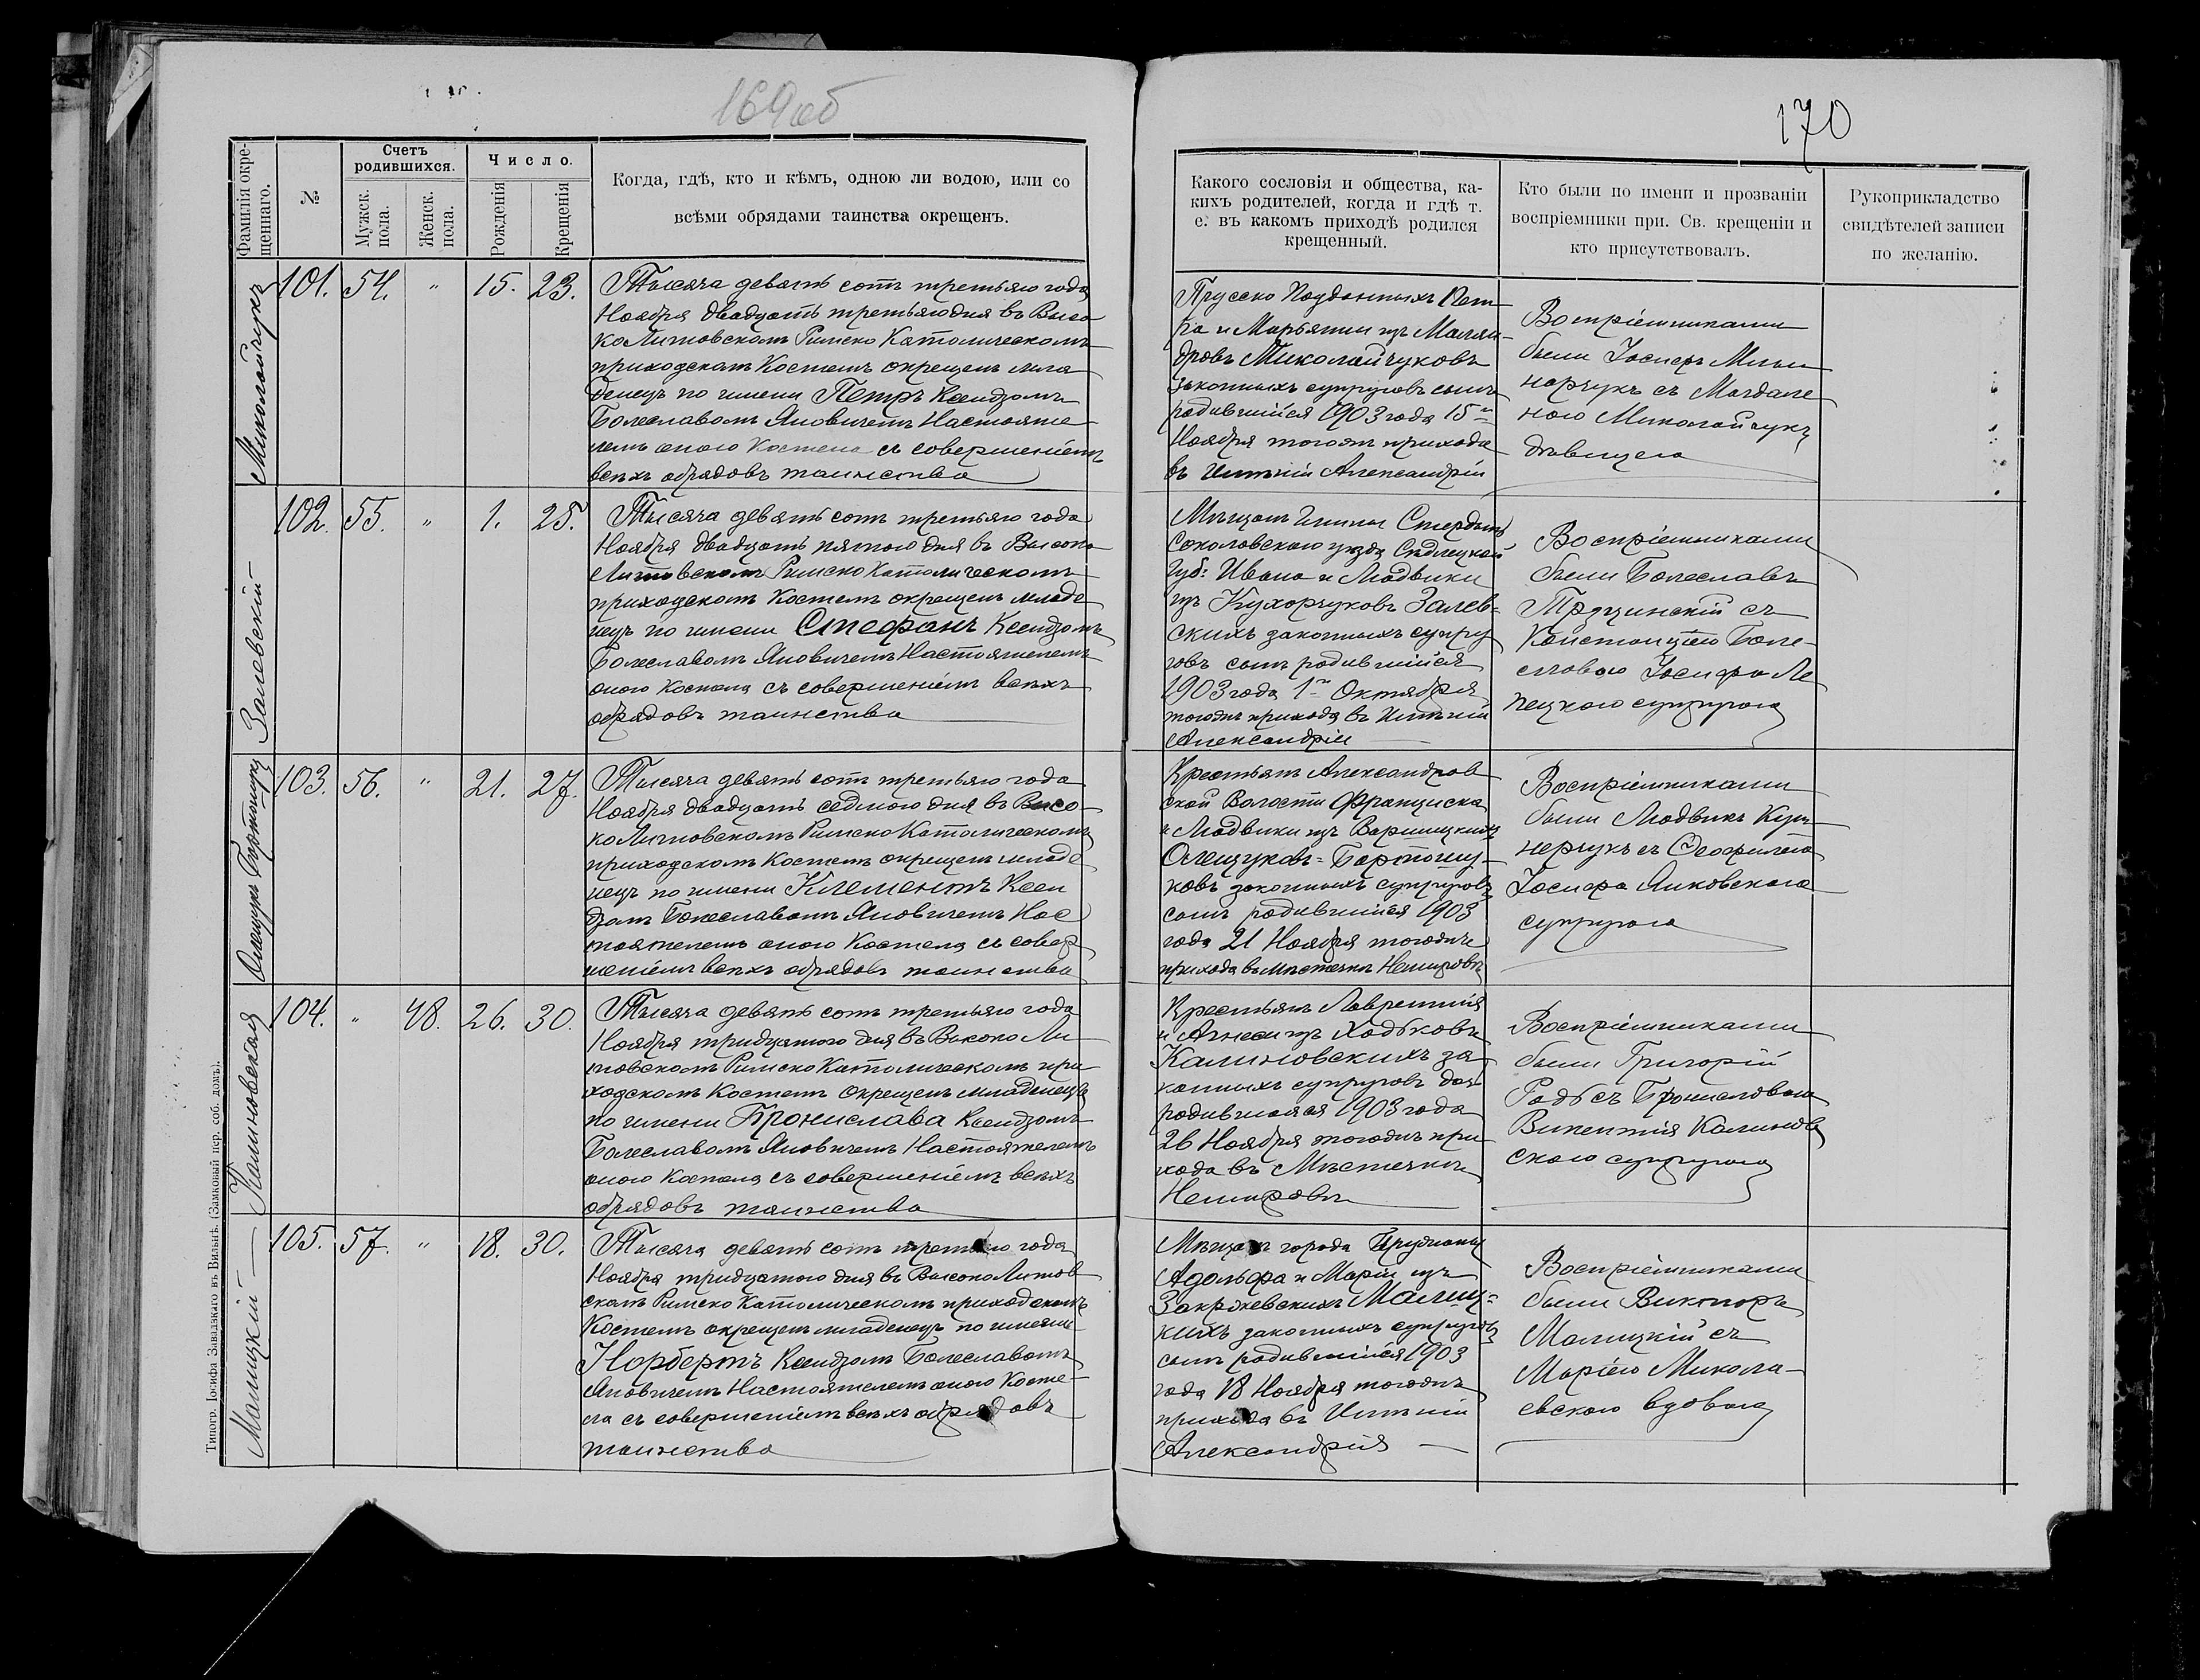 169 об
170
Фамилія окре-
щеннаго.
№
Счетъ
родившихся.
Мужск.
пола.
Женск.
пола.
Число.
Рожденія
Крещенія
Когда, гдѣ, кто и кѣмъ, одною ли водою, или со
всѣми обрядами таинства окрещенъ.
Какого сословія и общества, ка-
кихъ родителей, когда и гдѣ т.
е. въ какомъ приходѣ родился
крещенный.
Кто были по имени и прозваніи
воспріемники при. Св. крещеніи и
кто присутствовалъ.
Рукоприкладство
свидѣтелей записи
по желанію.
Миколайчукъ
101. 54. " 15. 23.
Тысяча девять сотъ третьяго года
Ноября двадцать третьяго дня въ Высо
ко Литовскомъ Римско Католическомъ
приходскомъ Костелѣ окрещенъ мла
денецъ по имени Петръ Ксендзомъ
Болеславомъ Яновичемъ Настояте
лемъ оного Костела съ совершеніемъ
всѣхъ обрядовъ таинства
Прусско Подданныхъ Пет
ра и Марьянны изъ
дровъ Миколайчуковъ
законныхъ супруговъ сынъ
родившійся 1903 года 15
Ноября тогожъ прихода
въ Имѣніи Александріи
Воспріемниками
были Іосифъ
съ Магдале
ною Миколайчукъ
дѣвицею
Залевскій
102. 55. " 1. 25.
Тысяча девять сотъ третьяго года
Ноября двадцать пятого дня въ Высоко
Литовскомъ Римско Католическомъ
приходскомъ Костелѣ окрещенъ младе
нецъ по имени Стефанъ Ксендзомъ
Болеславомъ Яновичемъ Настоятелемъ
оного Костела съ совершеніемъ всѣхъ
обрядовъ таинства
Мѣщанъ Гмины Стердынь
Соколовскаго уѣзда Сѣдлецкой
Губ: Ивана и Людвики
изъ Кухорчуковъ Залев-
скихъ законныхъ супру
говъ сынъ родившійся
1903 года 1 Октября
тогожъ прихода въ Имѣніи
Александріи
Воспріемниками
были Болеславъ
съ
Констанціею Боле-
славою Іосифа Ле
пецкого супругою
Олещукъ Бартошукъ
103. 56. " 21. 27.
Тысяча девять сотъ третьяго года
Ноября двадцать седмого дня въ Высо
ко Литовскомъ Римско Католическомъ
приходскомъ Костелѣ окрещенъ младе
нецъ по имени Клементъ Ксен
дзомъ Болеславомъ Яновичемъ Нас
тоятелемъ оного Костела съ совер
шеніемъ всѣхъ обрядовъ таинства
Крестьянъ Александров
ской Волости Франциска
и Людвики изъ Варшицкихъ
Олещуковъ-Бартошу-
ковъ законныхъ супруговъ
сынъ родившійся 1903
года 21 Ноября тогожъ
прихода въ мѣстечкѣ Немировѣ
Воспріемниками
были Людвикъ
съ Теофилею
Іосифа Янковского
супругою
Калиновская
104. " 48. 26. 30.
Тысяча девять сотъ третьяго года
Ноября тридцатого дня въ Высоко Ли
товскомъ Римско Католическомъ при
ходскомъ Костелѣ окрещенъ младенецъ
по имени Бронислава Ксендзомъ
Болеславомъ Яновичемъ Настоятелемъ
оного Костела съ совершеніемъ всѣхъ
обрядовъ таинства
Крестьянъ Лаврентія
и Агнеси изъ Ходьковъ
Калиновскихъ за
конныхъ супруговъ дочь
родившаяся 1903 года
26 Ноября тогожъ при
хода въ Мѣстечкѣ
Немировѣ
Воспріемниками
были Григорій
Радь съ Брониславою
Викентія Калинов
ского супругою
Малицкій
105. 57. " 18. 30.
Тысяча девять сотъ третьяго года
Ноября тридцатого дня въ Высоко Литов
скомъ Римско Католическомъ приходскомъ
Костелѣ окрещенъ младенецъ по имени
Норбертъ Ксендзомъ Болеславомъ
Яновичемъ Настоятелемъ оного Косте-
ла съ совершеніемъ всѣхъ обрядовъ
таинства
Мѣщанъ города Пружаны
Адольфа и Маріи изъ
Закржевскихъ Малиц-
кихъ законныхъ супруговъ
сынъ родившійся 1903
года 18 Ноября тогожъ
прихода въ Имѣніи
Александрія
Воспріемниками
были Викторъ
Малицкій съ
Маріею Микола-
евскою вдовою
Типогр. Іосифа Завадзкаго въ Вильнѣ. (Замковый пер. соб. домъ).